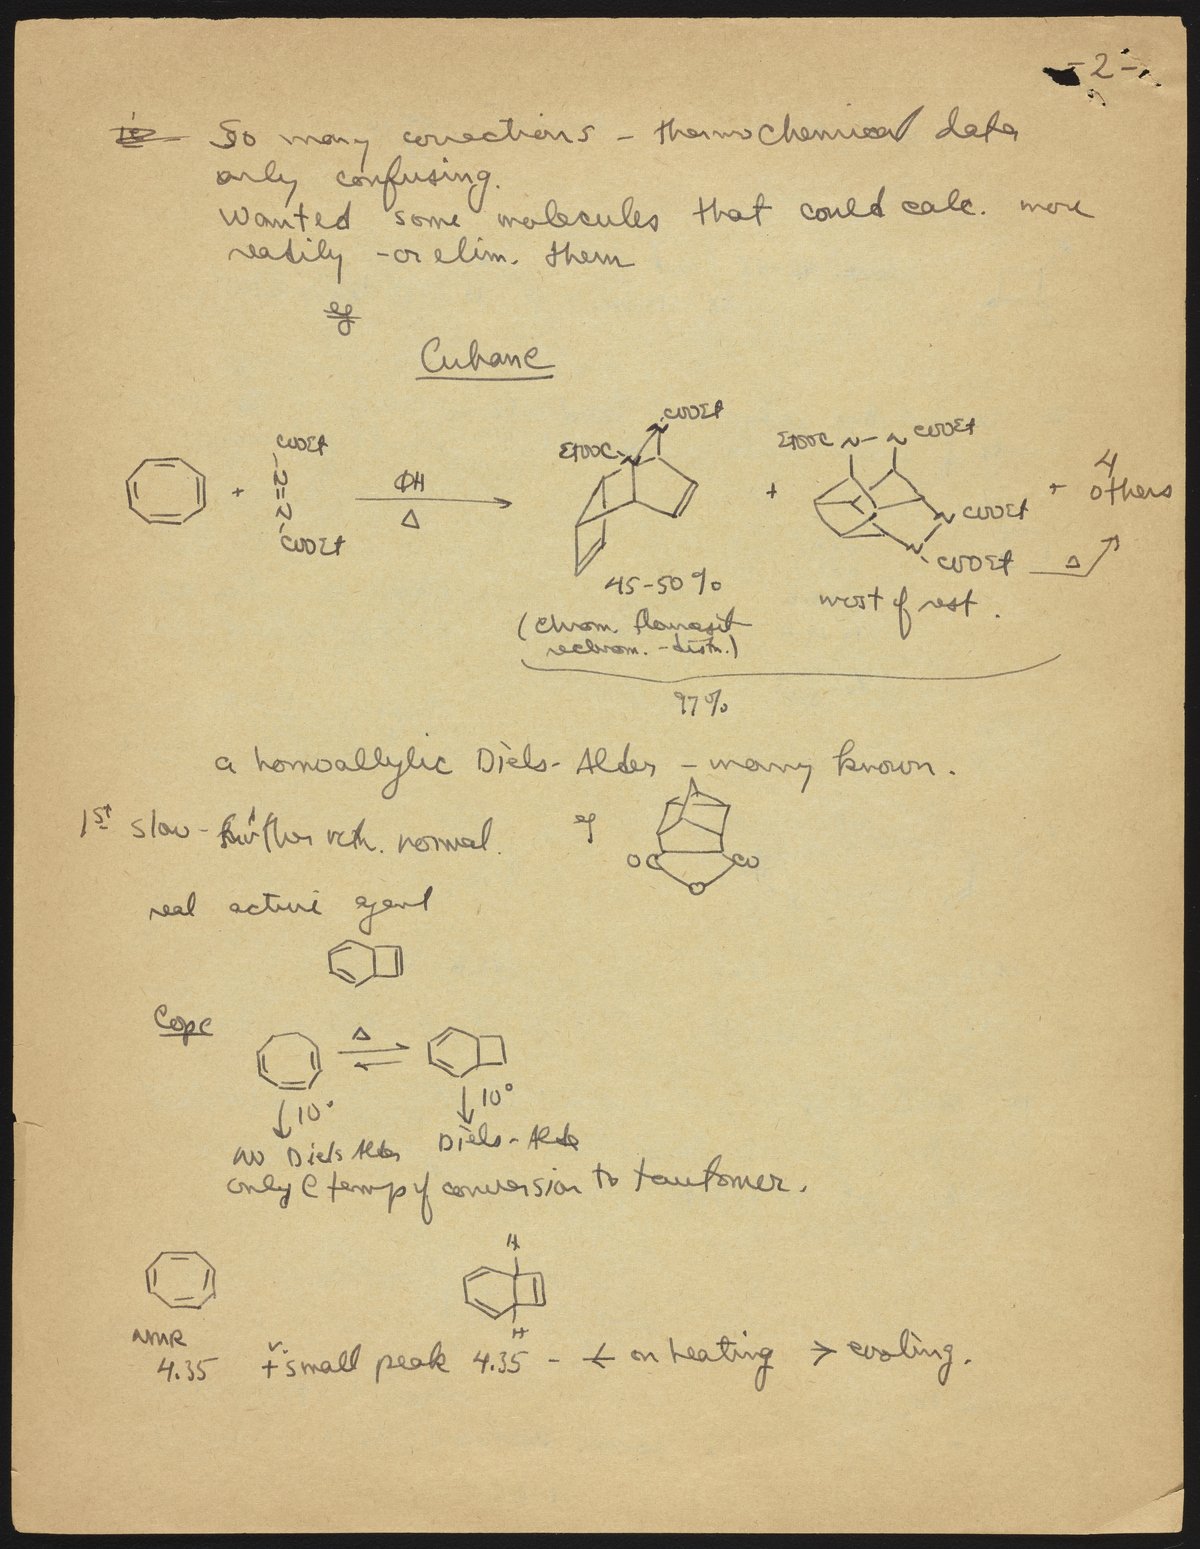 -2-
So many corrections - thermochemical data
only confusing.
Wanted some molecules that could calc. more
readily - or elim. them
eg
Cubane
COOEt
N=N
COOEt
+
ΦH
Δ
EtOOC N N COOEt
+
EtOOC N-N COOEt
N COOEt
N COOEt
+ 4 others
Δ
45-50%
(chrom. florasil
rechrom. - distn.)
most of rest.
97%
a homoallylic Diels-Alder - many known.
1st slow - further rctn. normal.
eg
OC CO
O
real active agent
Cope
Δ
10°
10°
no Diels Alder
Diels-Alder
only @ temp of conversion to tautomer.
H
H
NMR
4.35 + v. small peak 4.35 - < on heating > cooling.